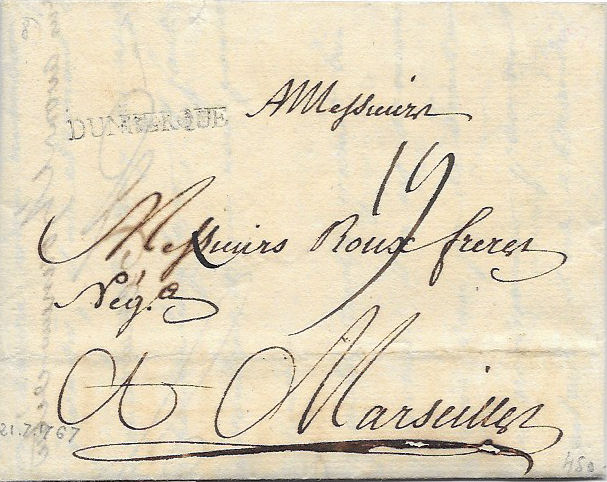 DUNKERQUE
A Messieurs
19
Messieurs Roux freres
Neg.ts
A Marseilles
21.7.1767
450